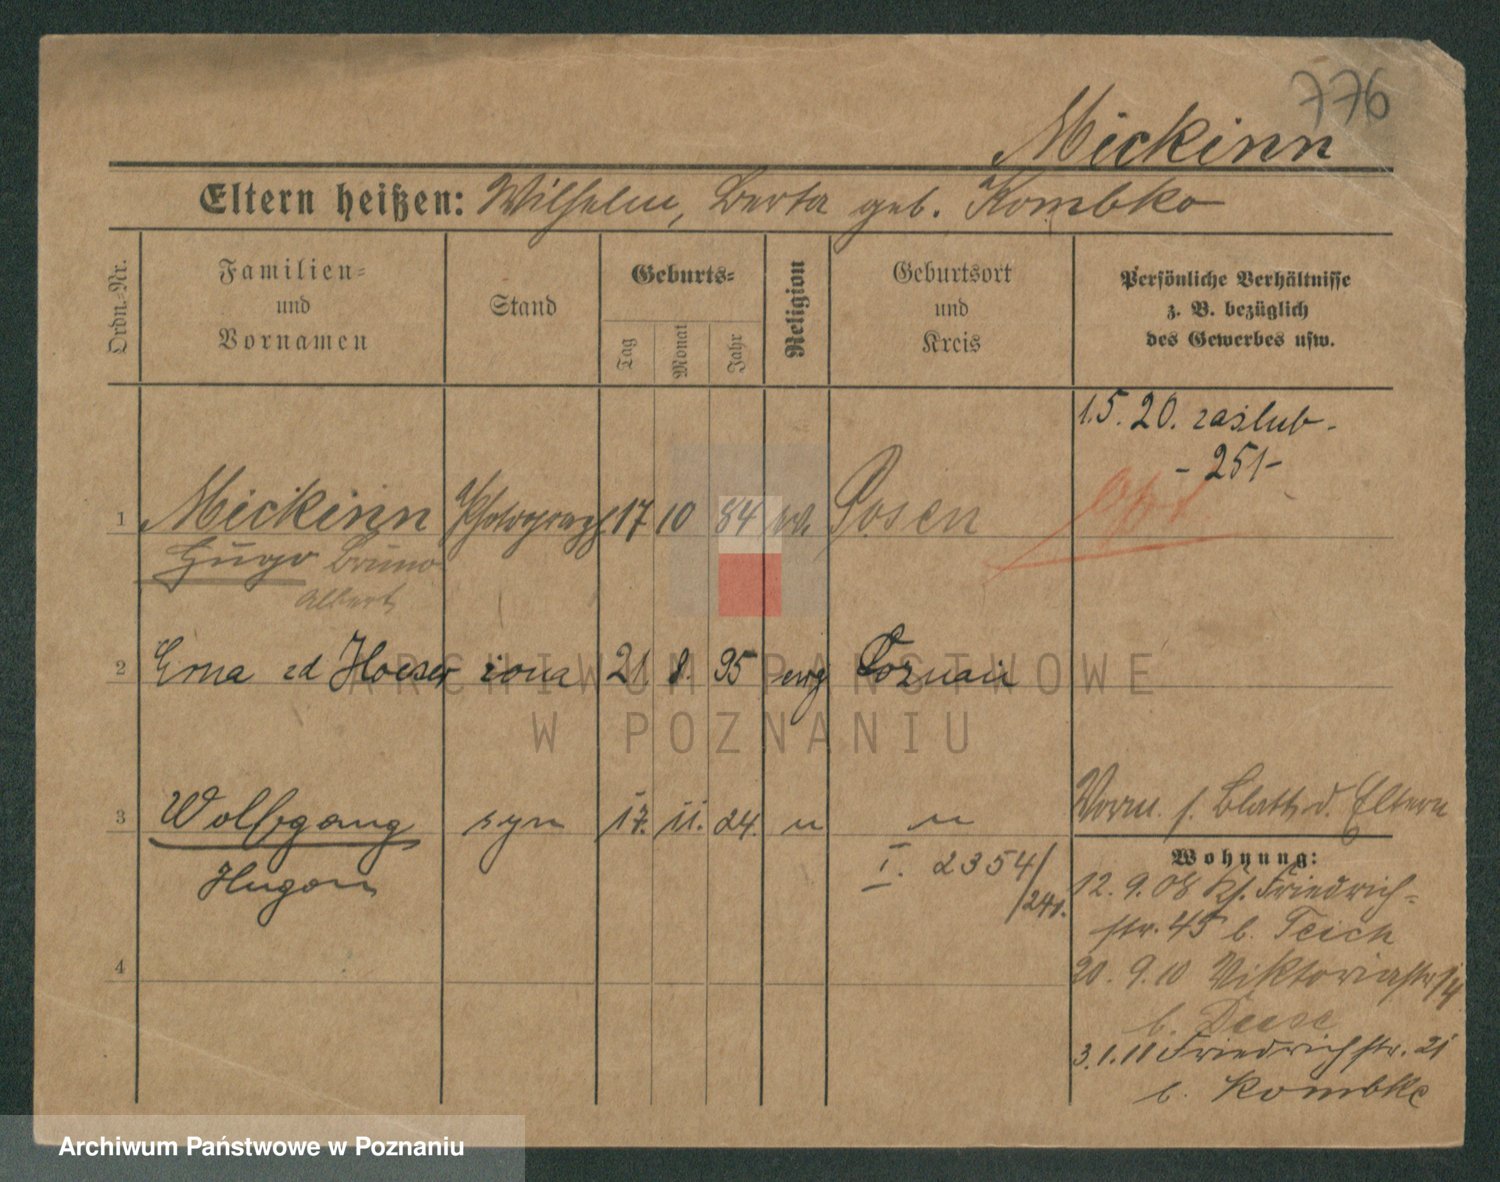 776
Mickinn
Eltern heißen: Wilhelm, Berta geb. Kombko
Ordn.-Nr.
Familien- und Vornamen
Stand
Geburts-
Tag
Monat
Jahr
Religion
Geburtsort und Kreis
Persönliche Verhältnisse z. B. bezüglich des Gewerbes usw.
1.5.20. zaślub-
- 251-
1 Mickinn Photograph 17 10 84 Posen
Hugo Bruno
Albert
2 Erna zd Hoeser żona 21. 8. 95 ewg Poznań
3 Wolfgang syn 17. 11. 24. " "
Hugon
I. 2354/24
Vorm. s. Blatt d. Eltern
Wohnung:
12. 9. 08 Kl. Friedrich-
str. 45 b. Teich
4
20. 9. 10 Viktoriastr.
b. Deese
3.1.11 Friedrichstr. 21
b. Kombke
ARCHIWUM PAŃSTWOWE
W POZNANIU
Archiwum Państwowe w Poznaniu